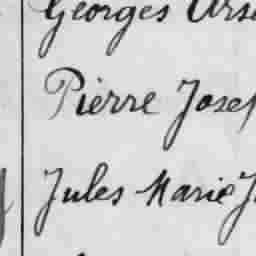 Georges Ars
Pierre Josep
Jules Marie J